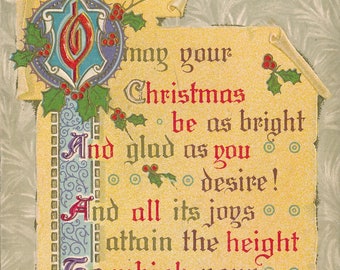 O may your
Christmas
be as bright
And glad as you
desire!
And all its joys
attain the height
To which your